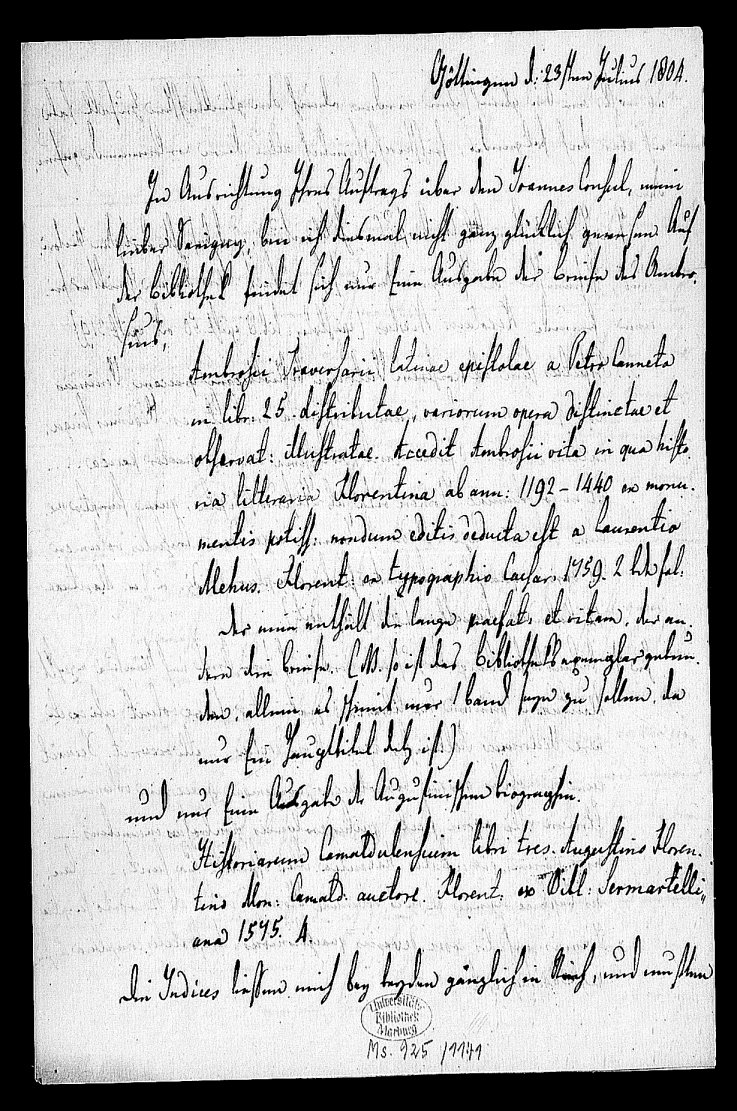 Göttingen d: 23sten Julius 1804.
In Ausrichtung Ihres Auftrags über den Joannes Consul, mein
lieber Savigny, bin ich diesmal nicht ganz glücklich gewesen Auf
der Bibliothek findet sich nur Eine Ausgabe der Briefe des Ambro-
sius,
Ambrosii Traversarii latinae epistolae a Petro Canneto
in libr: 25. distributae, variorum opera distinctae et
observat: illustratae. Accedit Ambrosii vita in qua histo
ria litteraria Florentina ab ann: 1192 – 1440 ex monu-
mentis potiss: nondum editis deducta est a Laurentio
Mehus. Florent: ex typographio Caesar: 1759. 2 fol:
Der eine enthält die lange praefat: et vitam, der an-
dere die Briefe. (NB. so ist das Bibliotheksexemplar gebun-
den, allein es scheint nur 1 Band seyn zu sollen, da
nur Ein Haupttitel ist)
und nur Eine Ausgabe der Augustinischen Biographie.
Historiarum Camaldulensium libri tres. Augustino Floren-
tino Mon: Camald: auctore. Florent: ex Bibl: Sermartelli,,
ana 1575. 4.
Die Indices ließen mich bey beyden gänzlich im Stich, und mußten
Universitäts
Bibliothek
Marburg
Ms. 925 / 1141